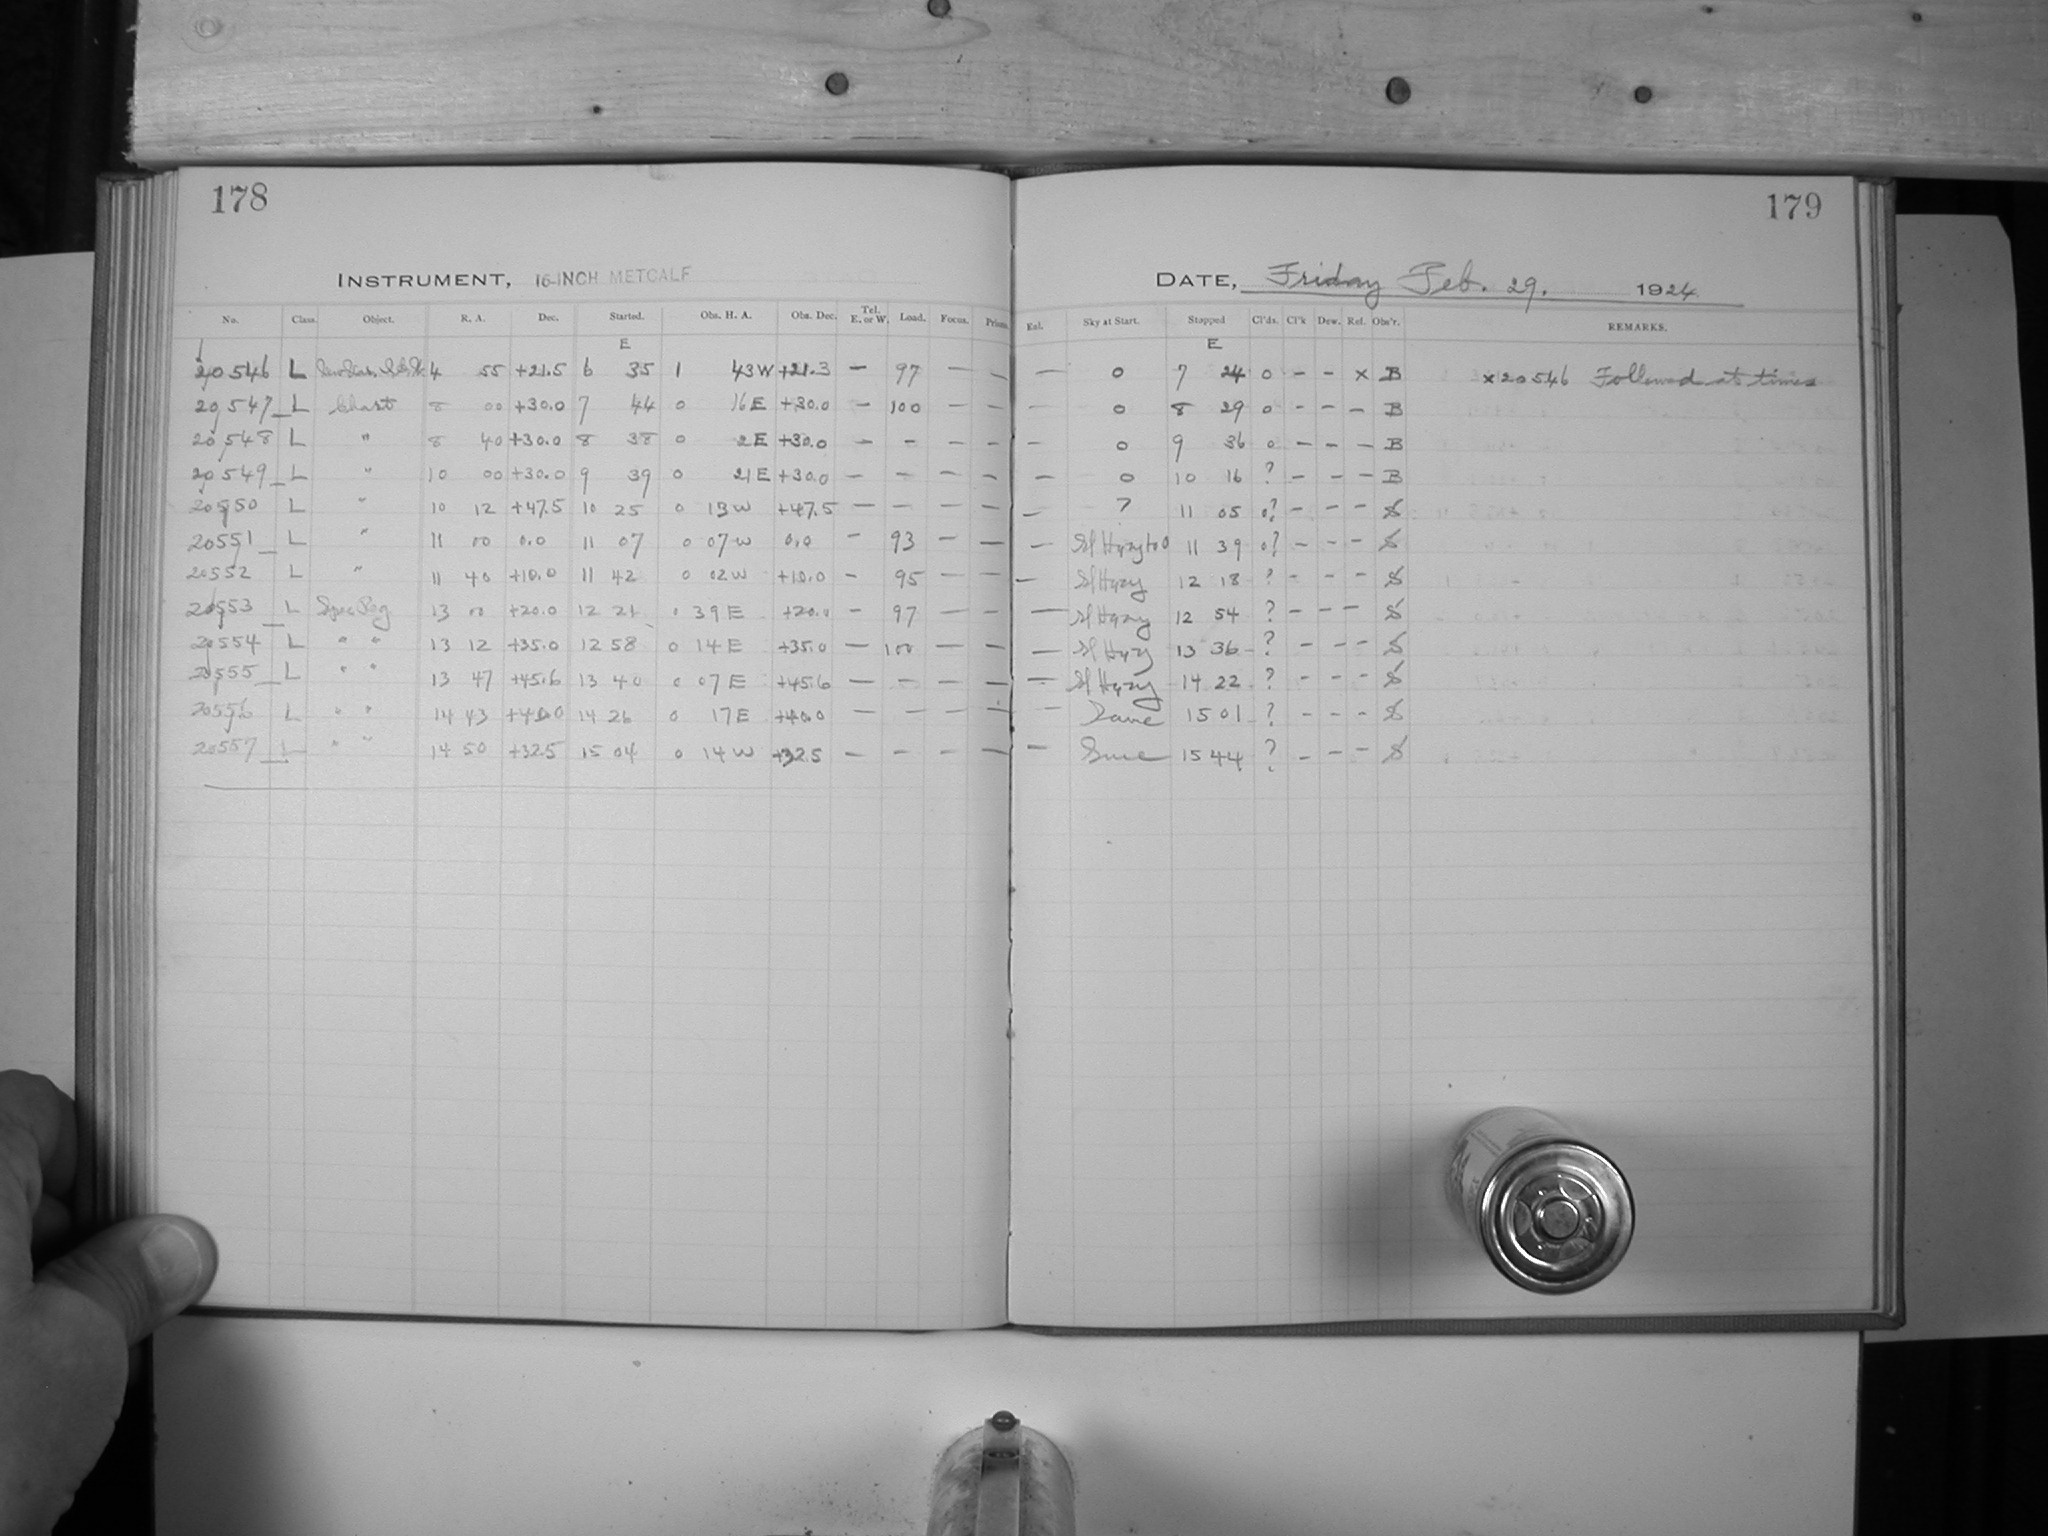 178
INSTRUMENT, 16-INCH METCALF
No. Class. Object. R. A. Dec. Started. Obs. H. A. Obs. Dec. Tel. E. or W. Load. Focus. Prism.
E
20546 L 4 55 +21.5 6 35 1 43W +21.3 — 97 — —
20547 L Chart 8 00 +30.0 7 44 0 16E +30.0 — 100 — —
20548 L " 8 40 +30.0 8 38 0 2E +30.0 — — — —
20549 L " 10 00 +30.0 9 39 0 21E +30.0 — — — —
20550 L " 10 12 +47.5 10 25 0 13W +47.5 — — — —
20551 L " 11 00 0.0 11 07 0 07W 0.0 — 93 — —
20552 L " 11 40 +10.0 11 42 0 02W +10.0 — 95 — —
20553 L Spec Reg 13 00 +20.0 12 21 0 39E +20.0 — 97 — —
20554 L " " 13 12 +35.0 12 58 0 14E +35.0 — 100 — —
20555 L " " 13 47 +45.6 13 40 0 07E +45.6 — — — —
20556 L " " 14 43 +40.0 14 26 0 17E +40.0 — — — —
20557 L " " 14 50 +32.5 15 04 0 14W +32.5 — — — —
179
DATE, Friday Feb. 29. 1924
Exl. Sky at Start. Stopped Cl'ds. Cl'k Dew. Rel. Obs'r. REMARKS.
E
— 0 7 24 0 – – x B x20546 Followed at times
— 0 8 29 0 – – – B
— 0 9 36 0 – – – B
— 0 10 16 ? – – – B
— ? 11 05 0? – – – S
— Sl Hazy to 0 11 39 0? – – – S
— Sl Hazy 12 18 ? – – – S
— Sl Hazy 12 54 ? – – – S
— Sl Hazy 13 36 ? – – – S
— Sl Hazy 14 22 ? – – – S
— Same 15 01 ? – – – S
— Same 15 44 ? – – – S